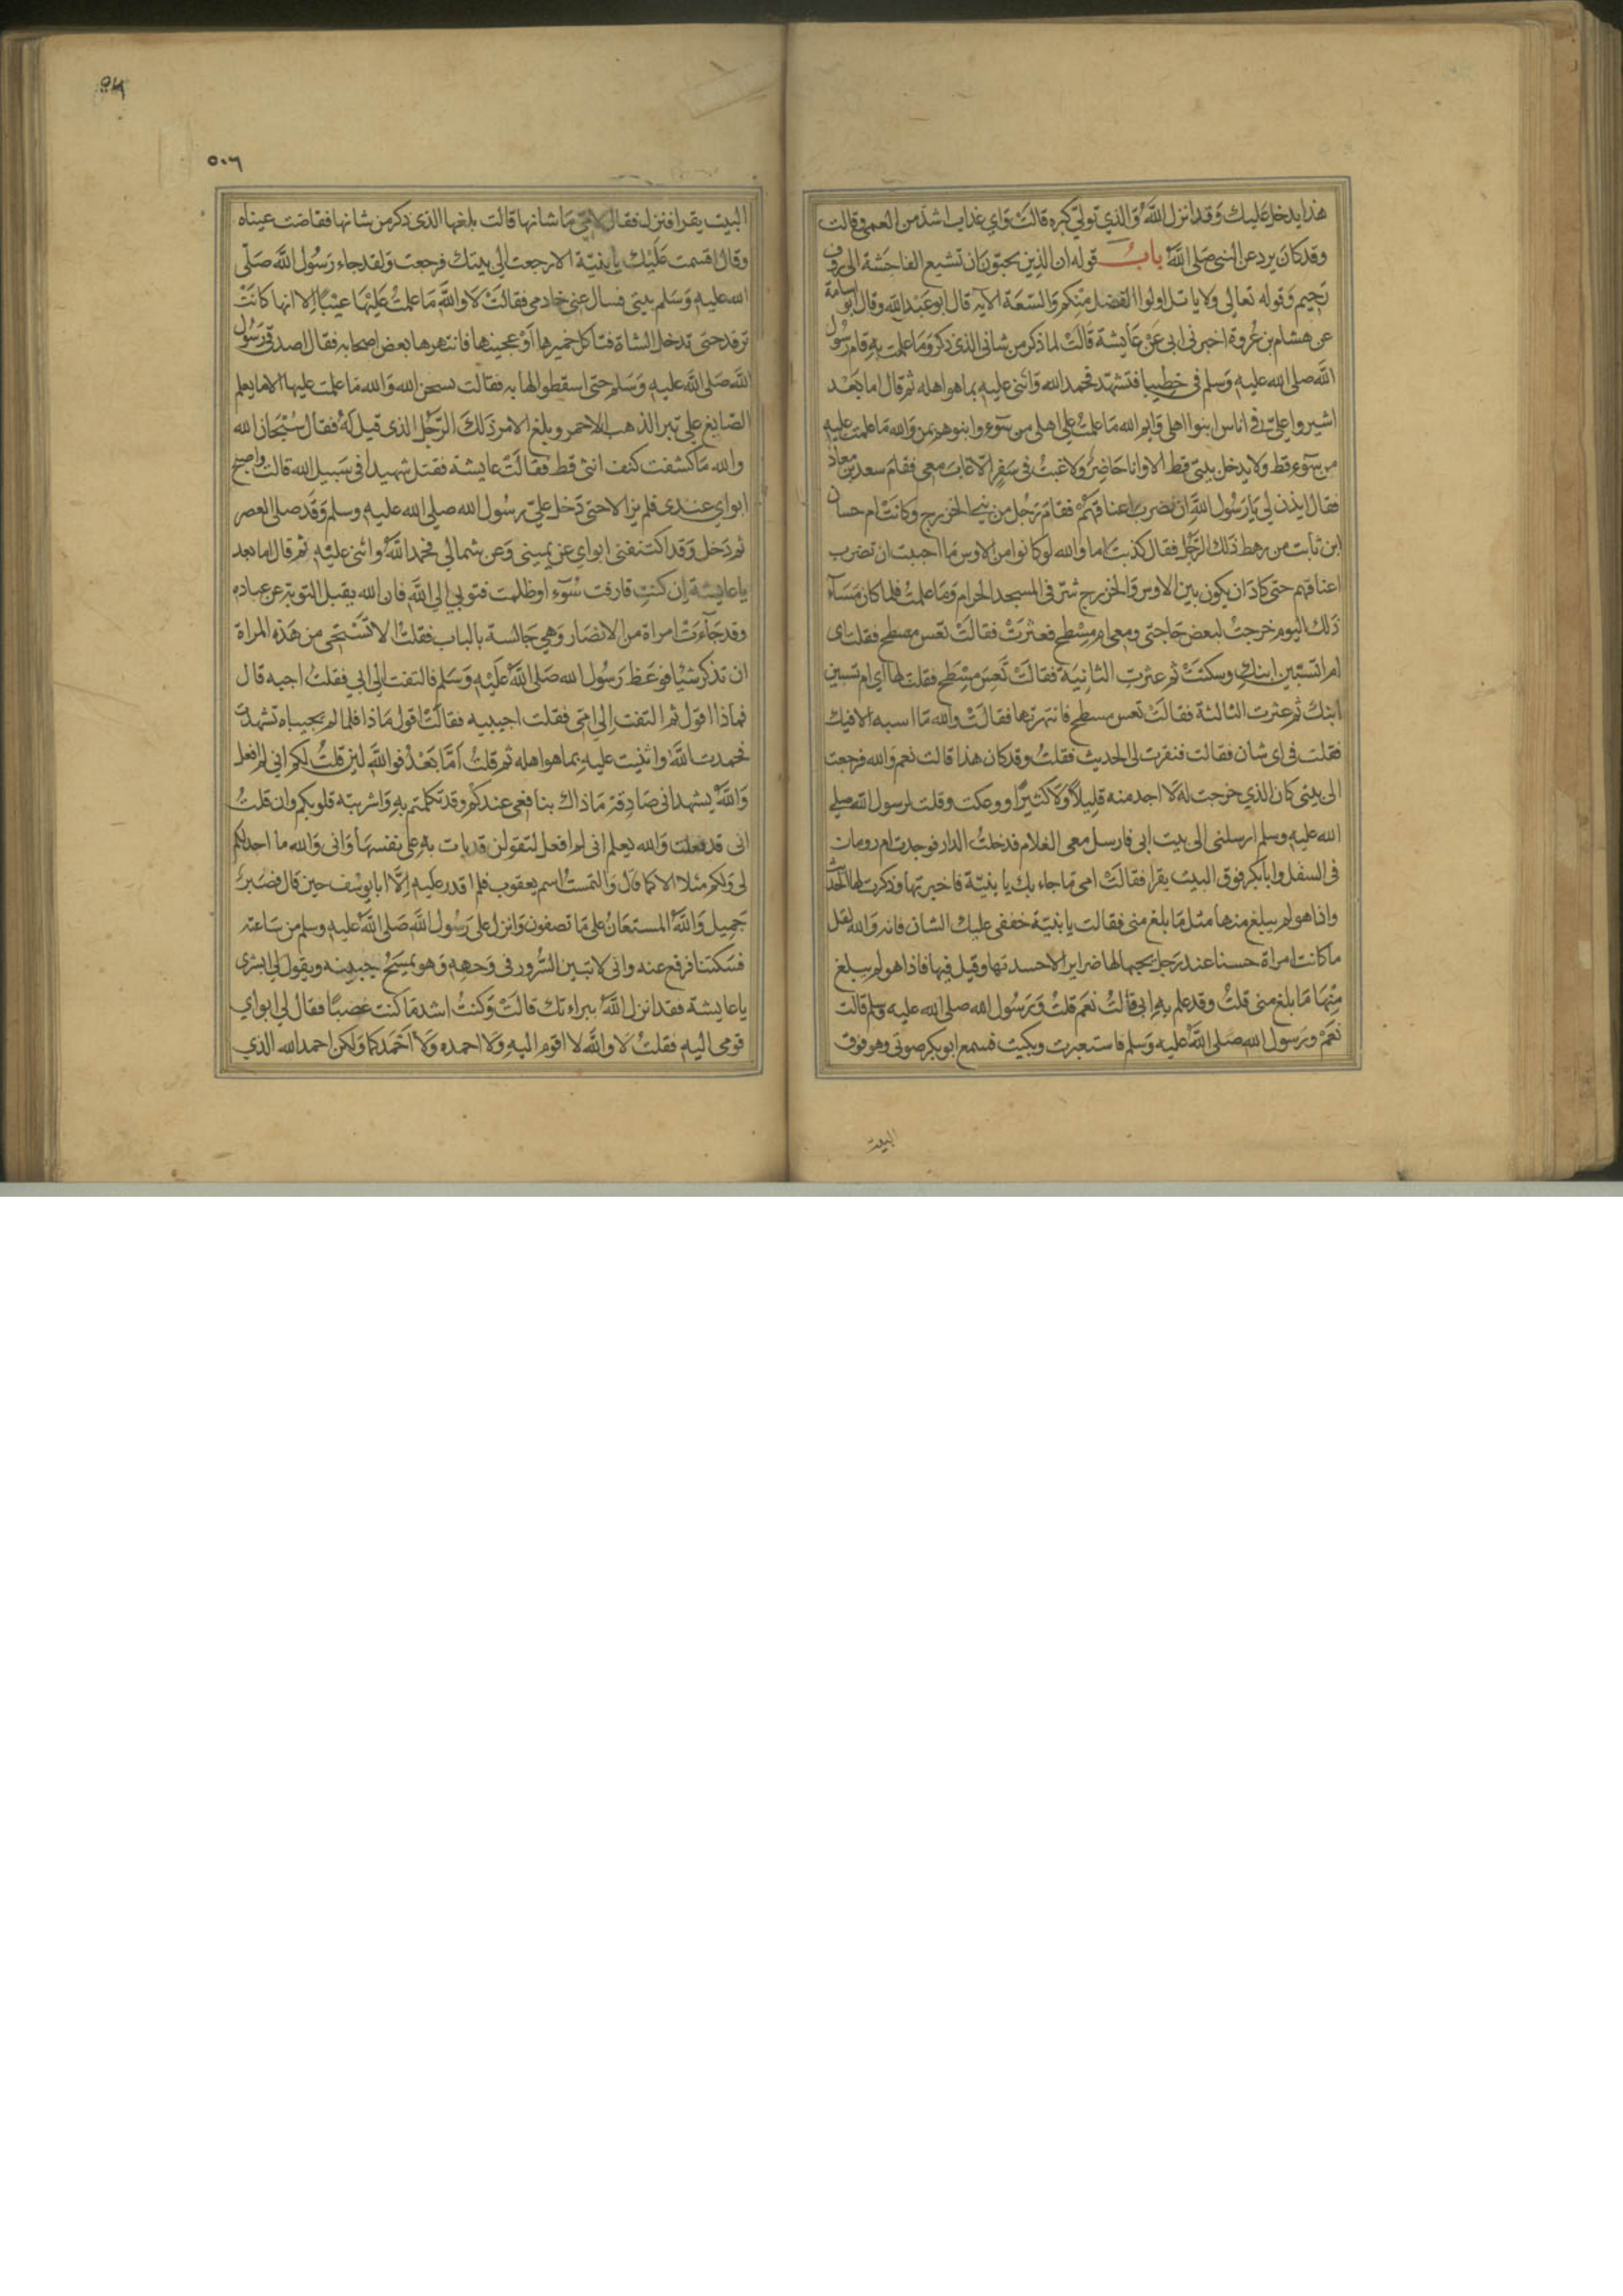 هذا يدخل عليك وقد انزل الله والذي تولي كبره قالت واي عذاب اشد من العمى وقالت
وقد كان يرد عن النبي صلى الله باب قوله ان الذين يحبون ان تشيع الفاحشة الى روف
رحيم وقوله تعالى ولا ياتل اولوا الفضل منكم والسعة الايه قال ابو عبد الله وقال ابو اسامة
عن هشام بن عروة اخبرني ابي عن عايشة قالت لما ذكر من شاني الذي ذكر وما علمت به قام رسول
الله صلى الله عليه وسلم في خطيبا فتشهد فحمد الله واثنى عليه بما هو اهله ثم قال اما بعد
اشيروا علي في اناس ابنوا اهلي وايم الله ما علمت على اهلي من سوء وابنوهم بمن والله ما علمت عليه
من سوء قط ولا يدخل بيتي قط الا وانا حاضر ولا غبت في سفر الا غاب معي فقام سعد بن معاذ
فقال ايذن لي يا رسول الله ان نضرب اعناقهم فقام رجل من بني الخزرج وكانت ام حسان
ابن ثابت من رهط ذلك الرجل فقال كذبت اما والله لو كانوا من الاوس ما احببت ان تضرب
اعناقهم حتى كاد ان يكون بين الاوس والخزرج شر في المسجد الحرام وما علمت فلما كان مساء
ذلك اليوم خرجت لبعض حاجتي ومعي ام مسطح فعثرت فقالت تعس مسطح فقلت اى
ام اتسبين ابنك وسكتت ثم عثرت الثانية فقالت تعس مسطح فقلت لها اي ام تسبين
ابنك ثم عثرت الثالثة فقالت تعس مسطح فانتهرتها فقالت والله ما اسبه الا فيك
فقلت في اى شان فقالت فنقرت لى الحديث فقلت وقد كان هذا قالت نعم والله فرجعت
الى بيتي كان الذي خرجت له لا اجد منه قليلا ولا كثيرا ووعكت وقلت لرسول الله صلى
الله عليه وسلم ارسلني الى بيت ابي فارسل معى الغلام فدخلت الدار فوجدت ام رومان
في السفل وابا بكر فوق البيت يقرا فقالت امي ما جاء بك يا بنية فاخبرتها وذكرت لها الحديث
واذا هو لم يبلغ منها مثل ما بلغ منى فقالت يا بنية خففى عليك الشان فانه والله لقل
ما كانت امراة حسنا عند رجل يحبها لها ضراير الا حسدنها وقيل فيها فاذا هو لم يبلغ
منها ما بلغ منى قلت وقد علم به ابي قالت نعم قلت ورسول الله صلى الله عليه وسلم قالت
نعم ورسول الله صلى الله عليه وسلم فاستعبرت وبكيت فسمع ابو بكر صوتي وهو فوق
البيت
٥٠٦
البيت يقرا فنزل فقال لامي ما شانها قالت بلغها الذى ذكر من شانها ففاضت عيناه
وقال اقسمت عليك يا بنية الا رجعت الى بيتك فرجعت ولقد جاء رسول الله صلى
الله عليه وسلم بيتى فسال عنى خادمي فقالت لا والله ما علمت عليها عيبا الا انها كانت
ترقد حتى تدخل الشاة فتاكل خميرها او عجينها فانتهرها بعض اصحابه فقال اصدقي رسول
الله صلى الله عليه وسلم حتى اسقطوا لها به فقالت سبحن الله والله ما علمت عليها الا ما يعلم
الصايغ على تبر الذهب الاحمر وبلغ الامر ذلك الرجل الذى قيل له فقال سبحان الله
والله ما كشفت كنف انثى قط فقالت عايشة فقتل شهيدا في سبيل الله قالت واصبح
ابواي عندى فلم يزالا حتى دخل علي رسول الله صلى الله عليه وسلم وقد صلى العصر
ثم دخل وقد اكتنفني ابواي عن يميني وعن شمالي فحمد الله واثنى عليه ثم قال اما بعد
يا عايشة ان كنت قارفت سوء او ظلمت فتوبي الى الله فان الله يقبل التوبة عن عباده
وقد جاءت امراة من الانصار وهي جالسة بالباب فقلت الا تستحى من هذه المراة
ان تذكر شيا فوعظ رسول الله صلى الله عليه وسلم فالتفت الى ابي فقلت اجبه قال
فماذا اقول ثم التفت الى امي فقلت اجيبيه فقالت اقول ماذا فلما لم يجيباه تشهدت
فحمدت الله واثنيت عليه بما هو اهله ثم قلت اما بعد فوالله لين قلت لكم اني لم افعل
والله يشهد اني صادقة ما ذاك بنافعي عندكم وقد تكلمتم به واشربته قلوبكم وان قلت
انى قد فعلت والله يعلم انى لم افعل لتقولن قد باءت به على نفسها وانى والله ما اجد لكم
لى ولكم مثلا الا كما قال والتمست اسم يعقوب فلم اقدر عليه الا ابا يوسف حين قال فصبر
جميل والله المستعان على ما تصفون وانزل على رسول الله صلى الله عليه وسلم من ساعته
فسكتنا فرفع عنه وانى لاتبين السرور في وجهه وهو يمسح جبينه ويقول لى ابشرى
يا عايشة فقد انزل الله براءتك قالت وكنت اشد ما كنت غضبا فقال لي ابواي
قومى اليه فقلت لا والله لا اقوم اليه ولا احمده ولا احمدكما ولكن احمد الله الذي